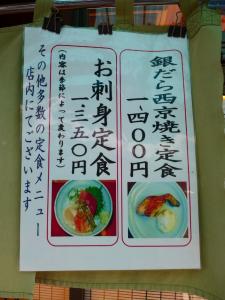 銀だら西京焼き定食
一、四〇〇円
お刺身定食
(内容は季節によって変わります)
一、三五〇円
その他多数の定食メニュー
店内にてございます